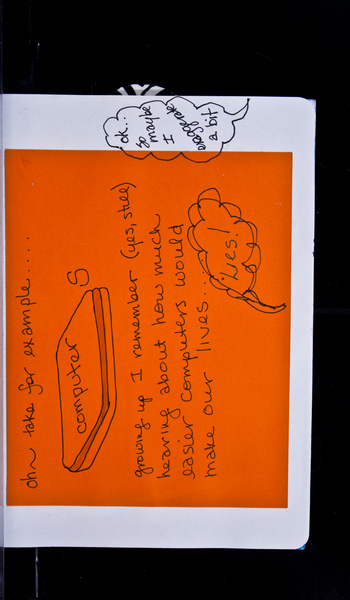 oh~ take for example....
computer S
growing up I remember (yes, still)
hearing about how much
easier computers would
make our lives...
lies!
ok..
so maybe
I
exaggerate
a bit